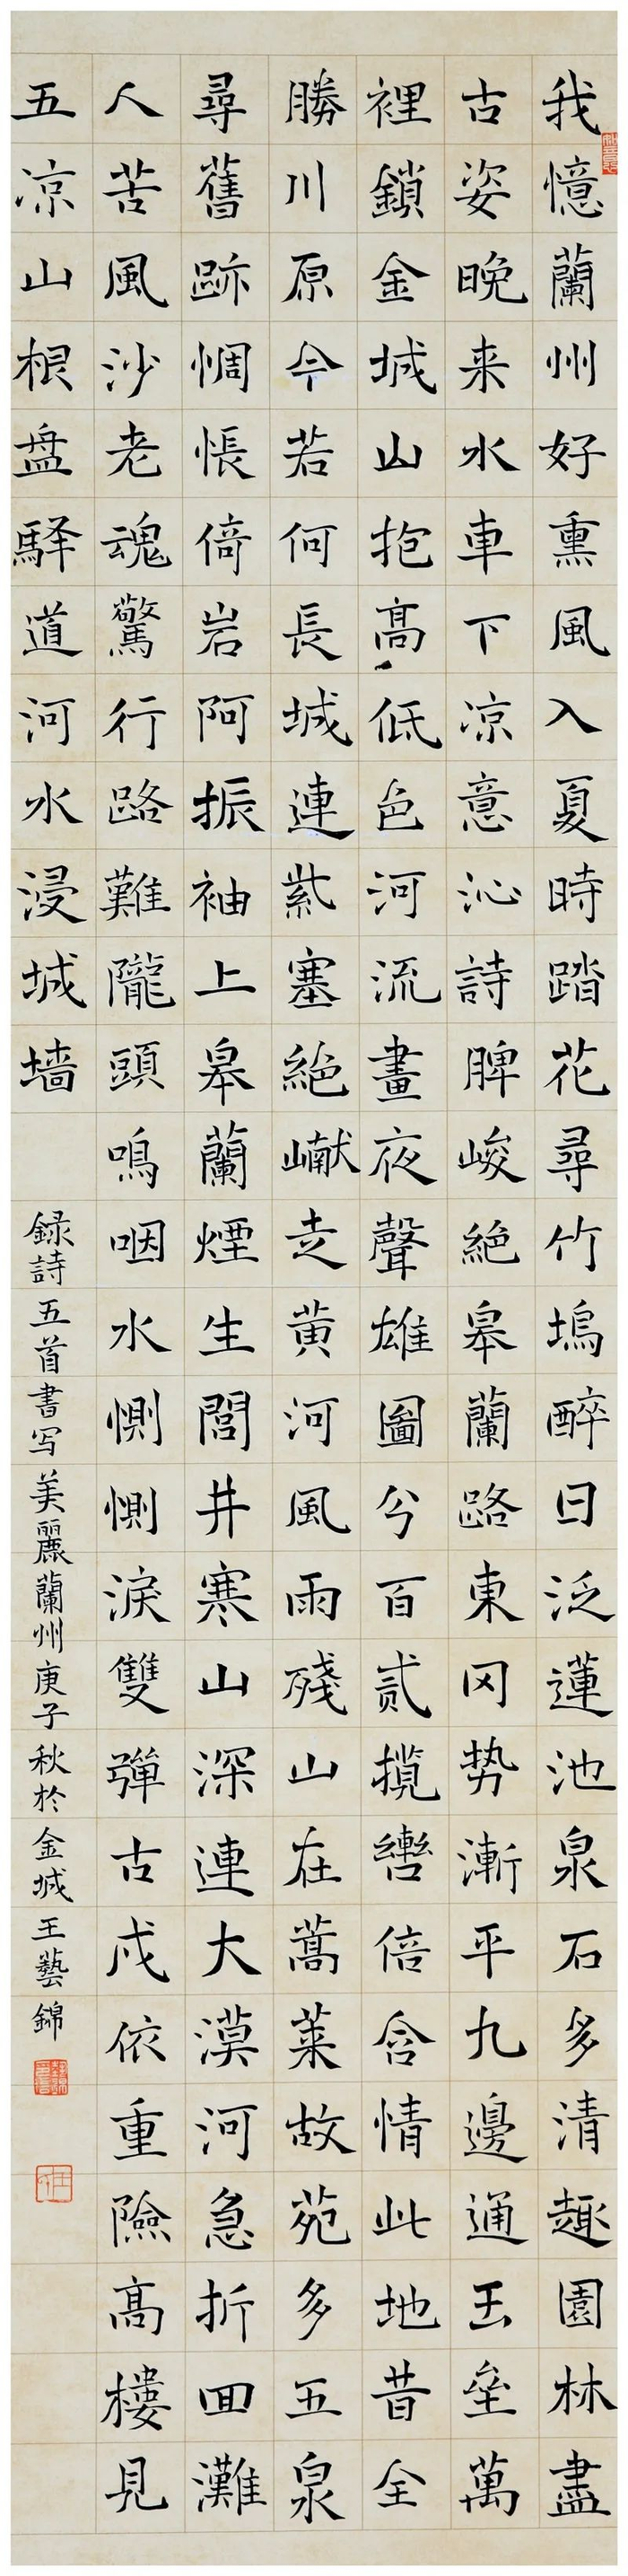 我憶蘭州好熏風入夏時踏花尋竹塢醉日泛蓮池泉石多清趣園林盡
古姿晚来水車下凉意沁詩脾峻絶皋蘭路東冈势漸平九邊通玉壘萬
裡鎖金城山抱高低色河流晝夜聲雄圖兮百贰攬轡倍含情此地昔全
勝川原今若何長城連紫塞絶巘走黄河風雨殘山在蒿莱故苑多五泉
尋舊跡惆悵倚岩阿振袖上皋蘭煙生閭井寒山深連大漠河急折回灘
人苦風沙老魂驚行路難隴頭鳴咽水惻惻淚雙彈古戍依重險高樓見
五凉山根盘驿道河水浸城墙
録詩五首書写美麗蘭州庚子秋於金城王藝錦